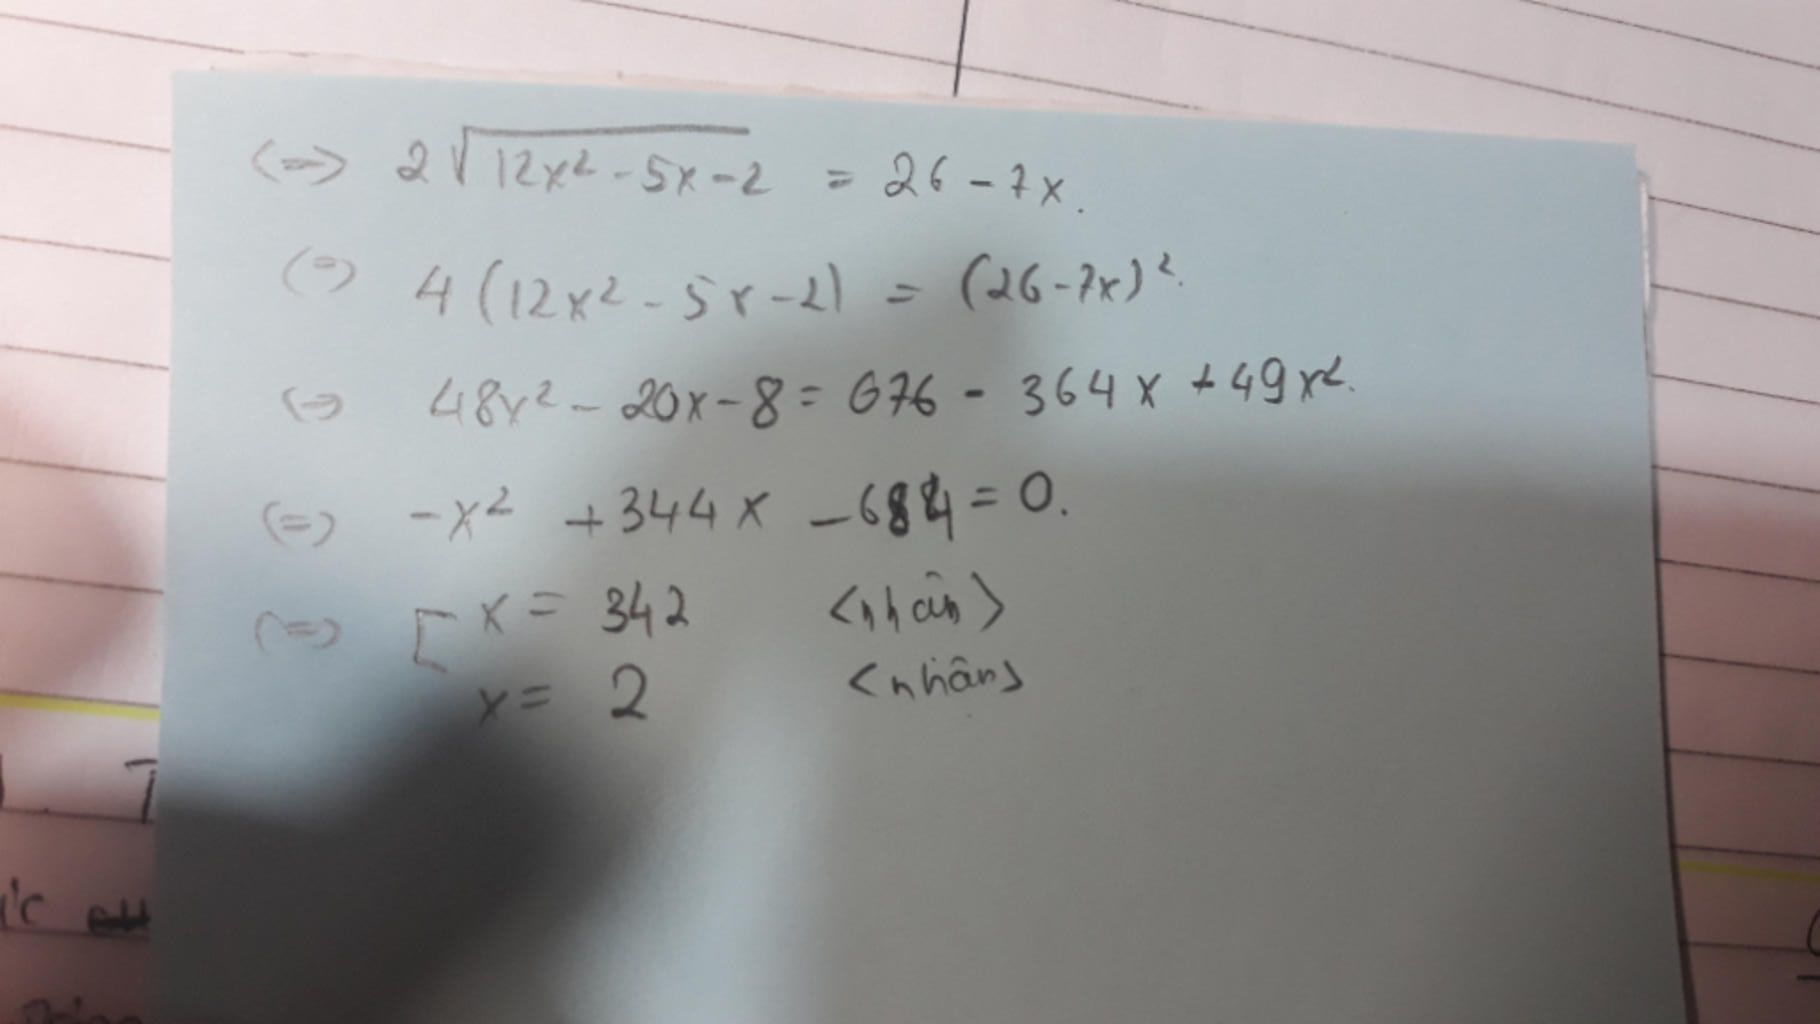 <=> 2√12x² - 5x - 2 = 26 - 7x.
(=) 4(12x² - 5x - 2) = (26 - 7x)².
<=> 48x² - 20x - 8 = 676 - 364x + 49x².
(=) -x² + 344x - 684 = 0.
(=) [ x = 342 <nhân>
x = 2 <nhân>